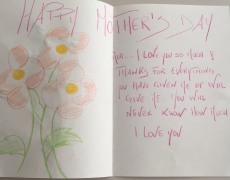 HAPPY MOTHER'S DAY
MUM... I LOVE YOU SO MUCH &
THANKS FOR EVERYTHING
YOU HAVE GIVEN ME OR WILL
GIVE ME YOU WILL
NEVER KNOW HOW MUCH
I LOVE YOU